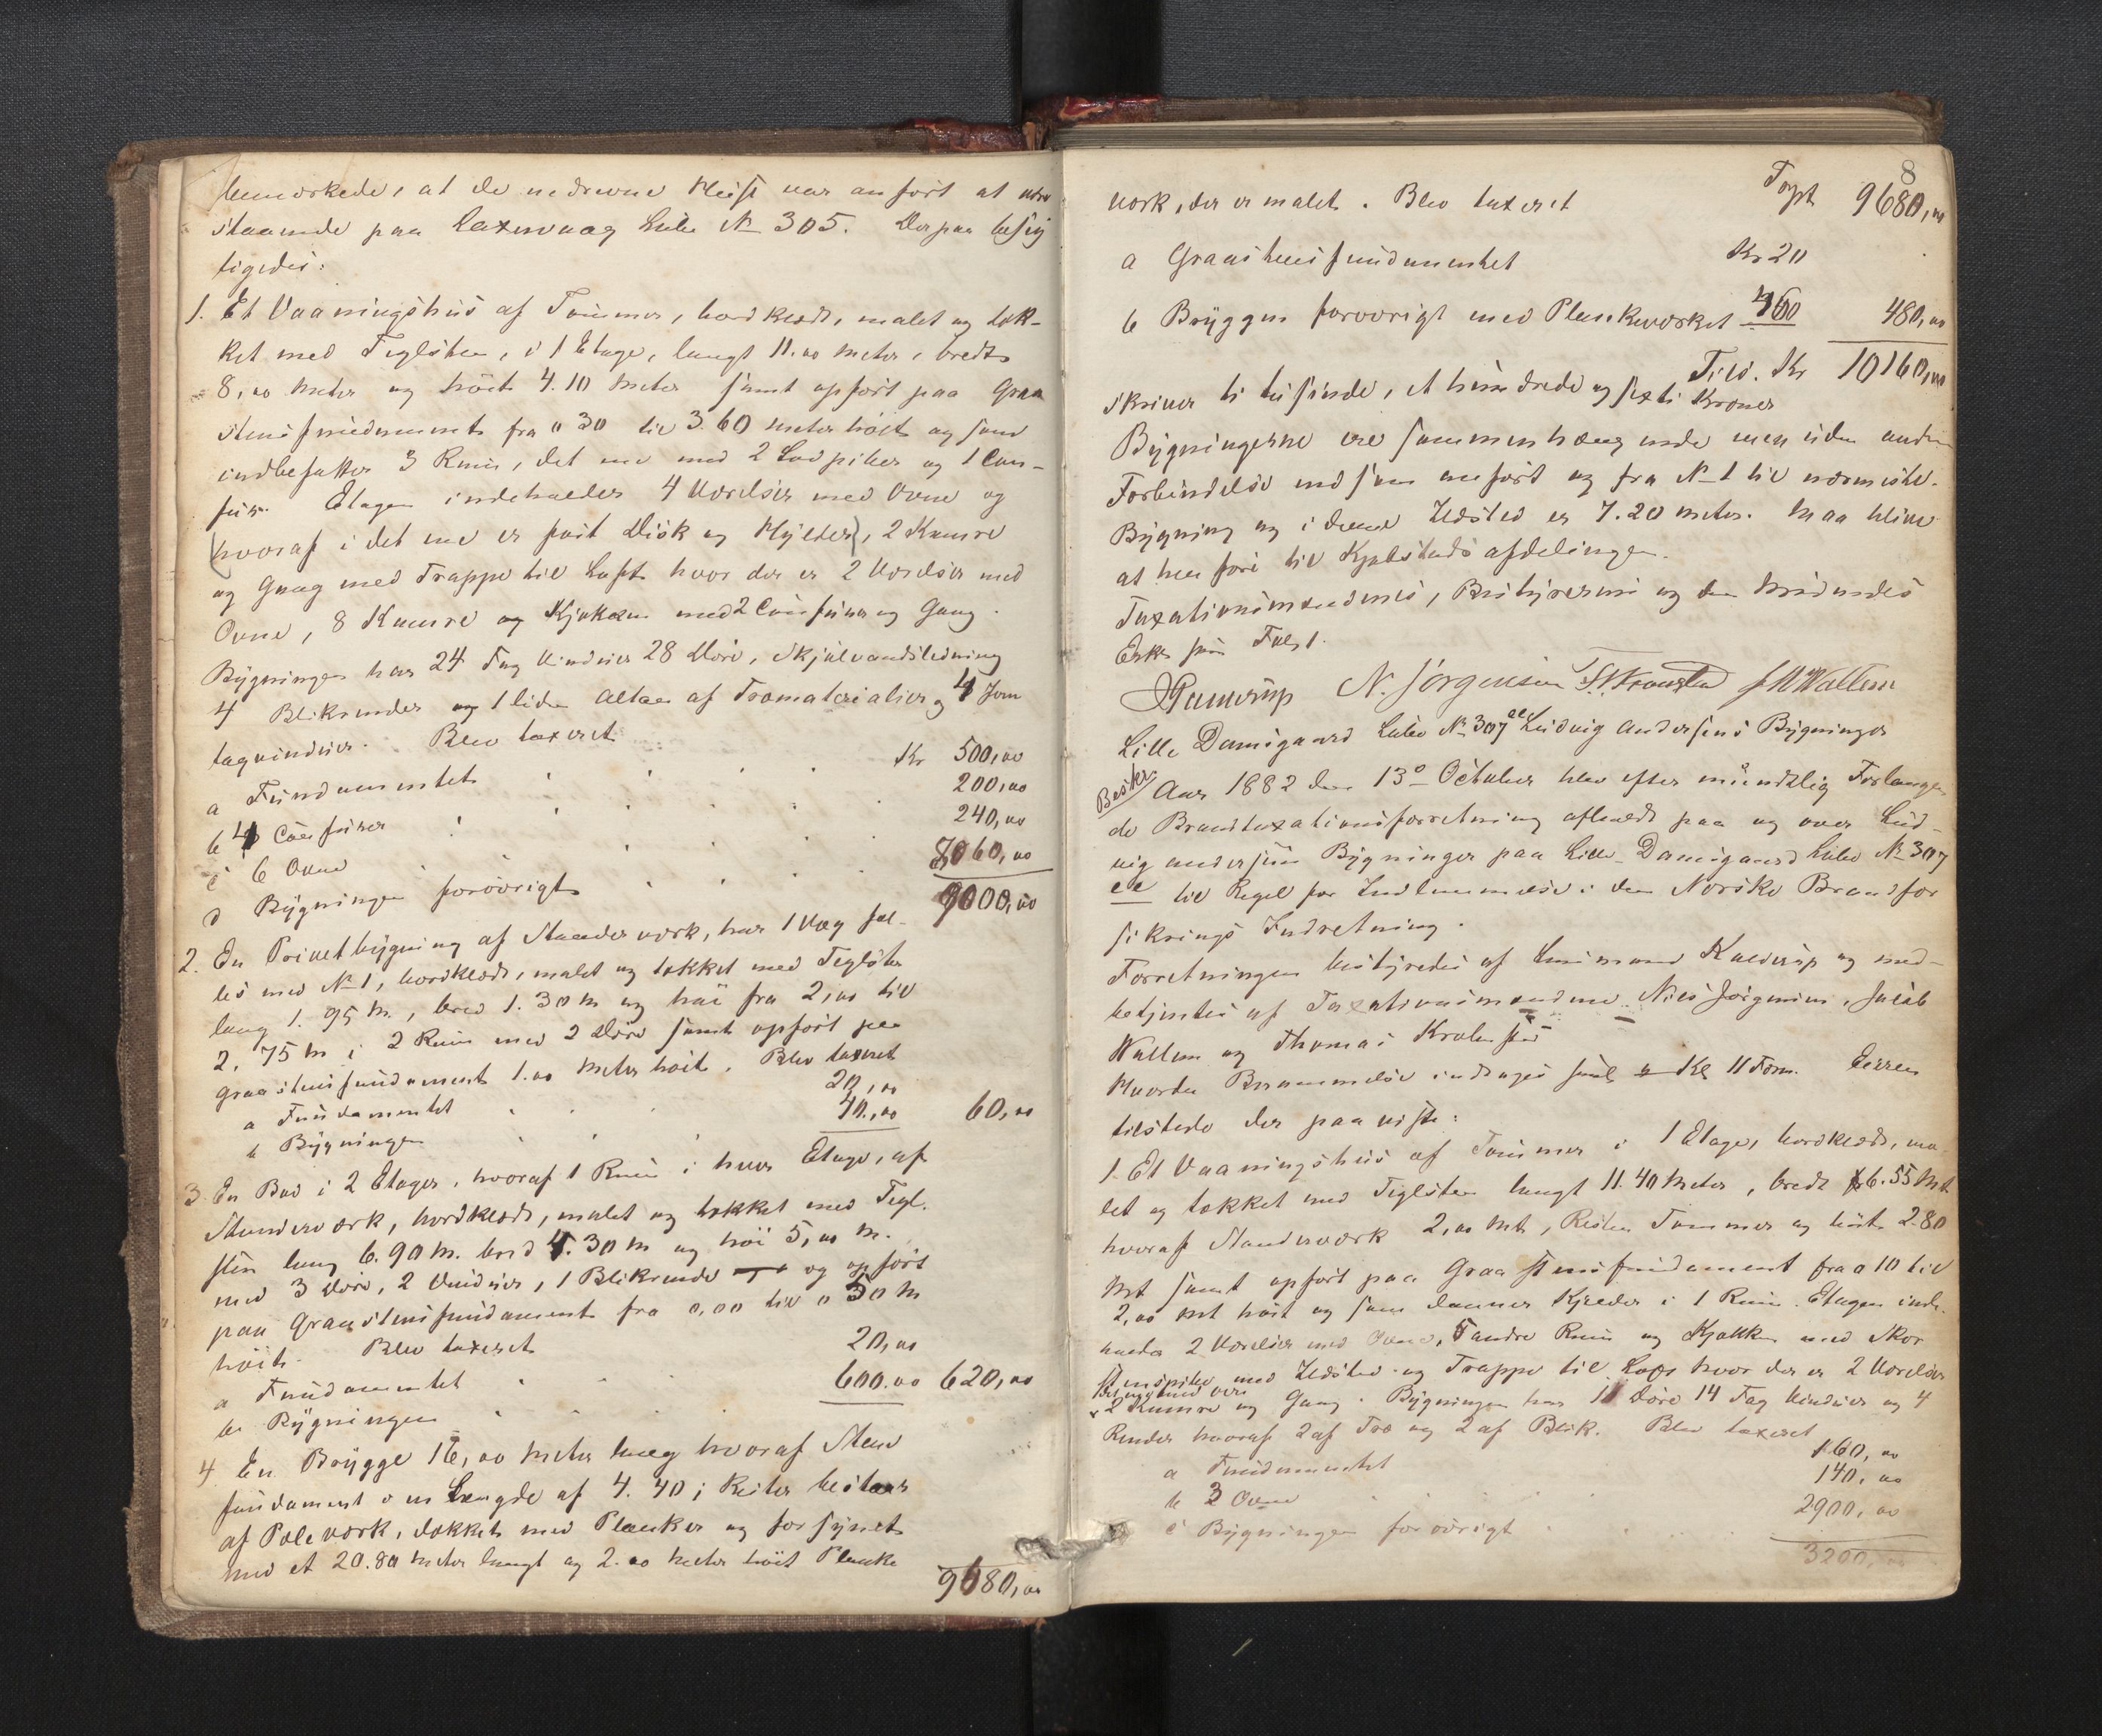 bemærkede, at de nedrevne Huse var anført at være
staaende paa Laxevaag Lübe № 305. Derpaa besig
tigedes:
1. Et Vaaningshus af Tømmer, bordklædt, malet og tæk-
ket med Teglsten, i 1 Etage, langt 11.00 Meter, bredt
8,00 Meter og höit 4.10 Meter samt opført paa Graa
stensfundament fra 0 30 til 3.60 Meter höit og som
indbefatter 3 Rum, det ene med 2 Sodpiber og 1 Com-
fur. Etagen indeholder 4 Værelser med Ovne og
(hvoraf i det ene er fast Disk og Hylder), 2 Kamre
og Gang med Trappe til Loft hvor der er 2 Værelser med
Ovne, 8 Kamre og Kjøkken med 2 Comfurer og Gang.
Bygningen har 24 Fag Vinduer 28 Döre, Skjulvandsledning
4 Blikrender og 1 liden Altan af Træmaterialier og 4 Jern
tagvinduer. Blev taxeret
a Fundamentet Kr 500,00
b 4 Comfurer 200,00
c 6 Ovne 240,00
d Bygningen forövrigt 8060,00
9000,00
2. En Privetbygning af Stænderværk, har 1 Væg fæl-
les med № 1, bordklædt, malet og tækket med Teglsten
lang 1.95 M., bred 1.30 M og höi fra 2,00 til
2,75 M i 2 Rum med 2 Döre samt opført paa
Graastensfundament 1.00 Meter höit. Blev taxeret
a Fundamentet 20,00
b Bygningen 40,00 60,00
3. En Bod i 2 Etager, hvoraf 1 Rum i hver Etage, af
Stænderværk, bordklædt, malet og tækket med Tegl-
sten lang 6.90 M. bred 4.30 M og höi 5,00 M.
med 3 Döre, 2 Vinduer, 1 Blikrende og opført
paa Graastensfundament fra 0,00 til 0 50 M
höit. Blev taxeret
a Fundamentet 20,00
b Bygningen 600.00 620,00
4 En Brygge 16,00 Meter lang hvoraf Sten
fundament i en Længde af 4.40; Resten bestaar
af Pæleværk, dækket med Planker og forsynet
med et 20.80 Meter langt og 2.00 Meter höit Planke
9680,00
8
værk, der er malet. Blev taxeret Trspt 9680,00
a Graastensfundamentet Kr 20
b Bryggen forövrigt med Plankeværket 460 480,00
Tils. Kr 10160,00
skriver ti tusinde, et hundrede og sexti Kroner
Bygningerne ere sammenhængende men uden anden
Forbindelse end som anført og fra № 1 til nærmeste
Bygning og i denne Ildsted er 7.20 Meter. Maa blive
at henføre til Kjøbstadsafdelingen.
Taxationsmændenes, Bestyrerens og den
Eder som Fol. 1.
N. Jörgensen J. Wallem
Lille Damsgaard Lübe № 307 Ludvig Andersens Bygninger
Beskr.
Aar 1882 den 13de October blev efter mündtlig Forlangen
de Brandtaxationsforretning afholdt paa og over Lud-
vig Andersens Bygninger paa Lille Damsgaard Lübe № 307
til Regel for Indlemmelse i den Norske Brandfor
sikrings Indretning.
Forretningen bestyredes af Lensmand Kuldrup og med-
betjentes af Taxationsmændene Niels Jörgensen, Jacob
Wallem og Thomas
Hvorda Berammelse indtoges Kl 11 Form. Eieren
tilstede der paaviste:
1. Et Vaaningshus af Tømmer i 1 Etage, bordklædt, ma-
let og tækket med Teglsten langt 11.40 Meter, bredt 6.55 Mt
hvoraf Stænderværk 2,00 Mt, Resten Tømmer og höit 2.80
Mt samt opført paa Graastensfundament fra 0 10 til
2,00 Mt höit og som danner Kjælder i 1 Rum. Etagen inde-
holder 2 Værelser med Ovne, 5 andre Rum og Kjøkken med Skor
stenspibe med Ildsted og Trappe til Loft hvor der er 2 Værelser
2 Kamre og Gang. Bygningen har 11 Döre 14 Fag Vinduer og 4
Render hvoraf 2 af Træ og 2 af Blik. Blev taxeret
a Fundamentet 160,00
b 3 Ovne 140,00
c Bygningen forövrigt 2900,00
3200,00